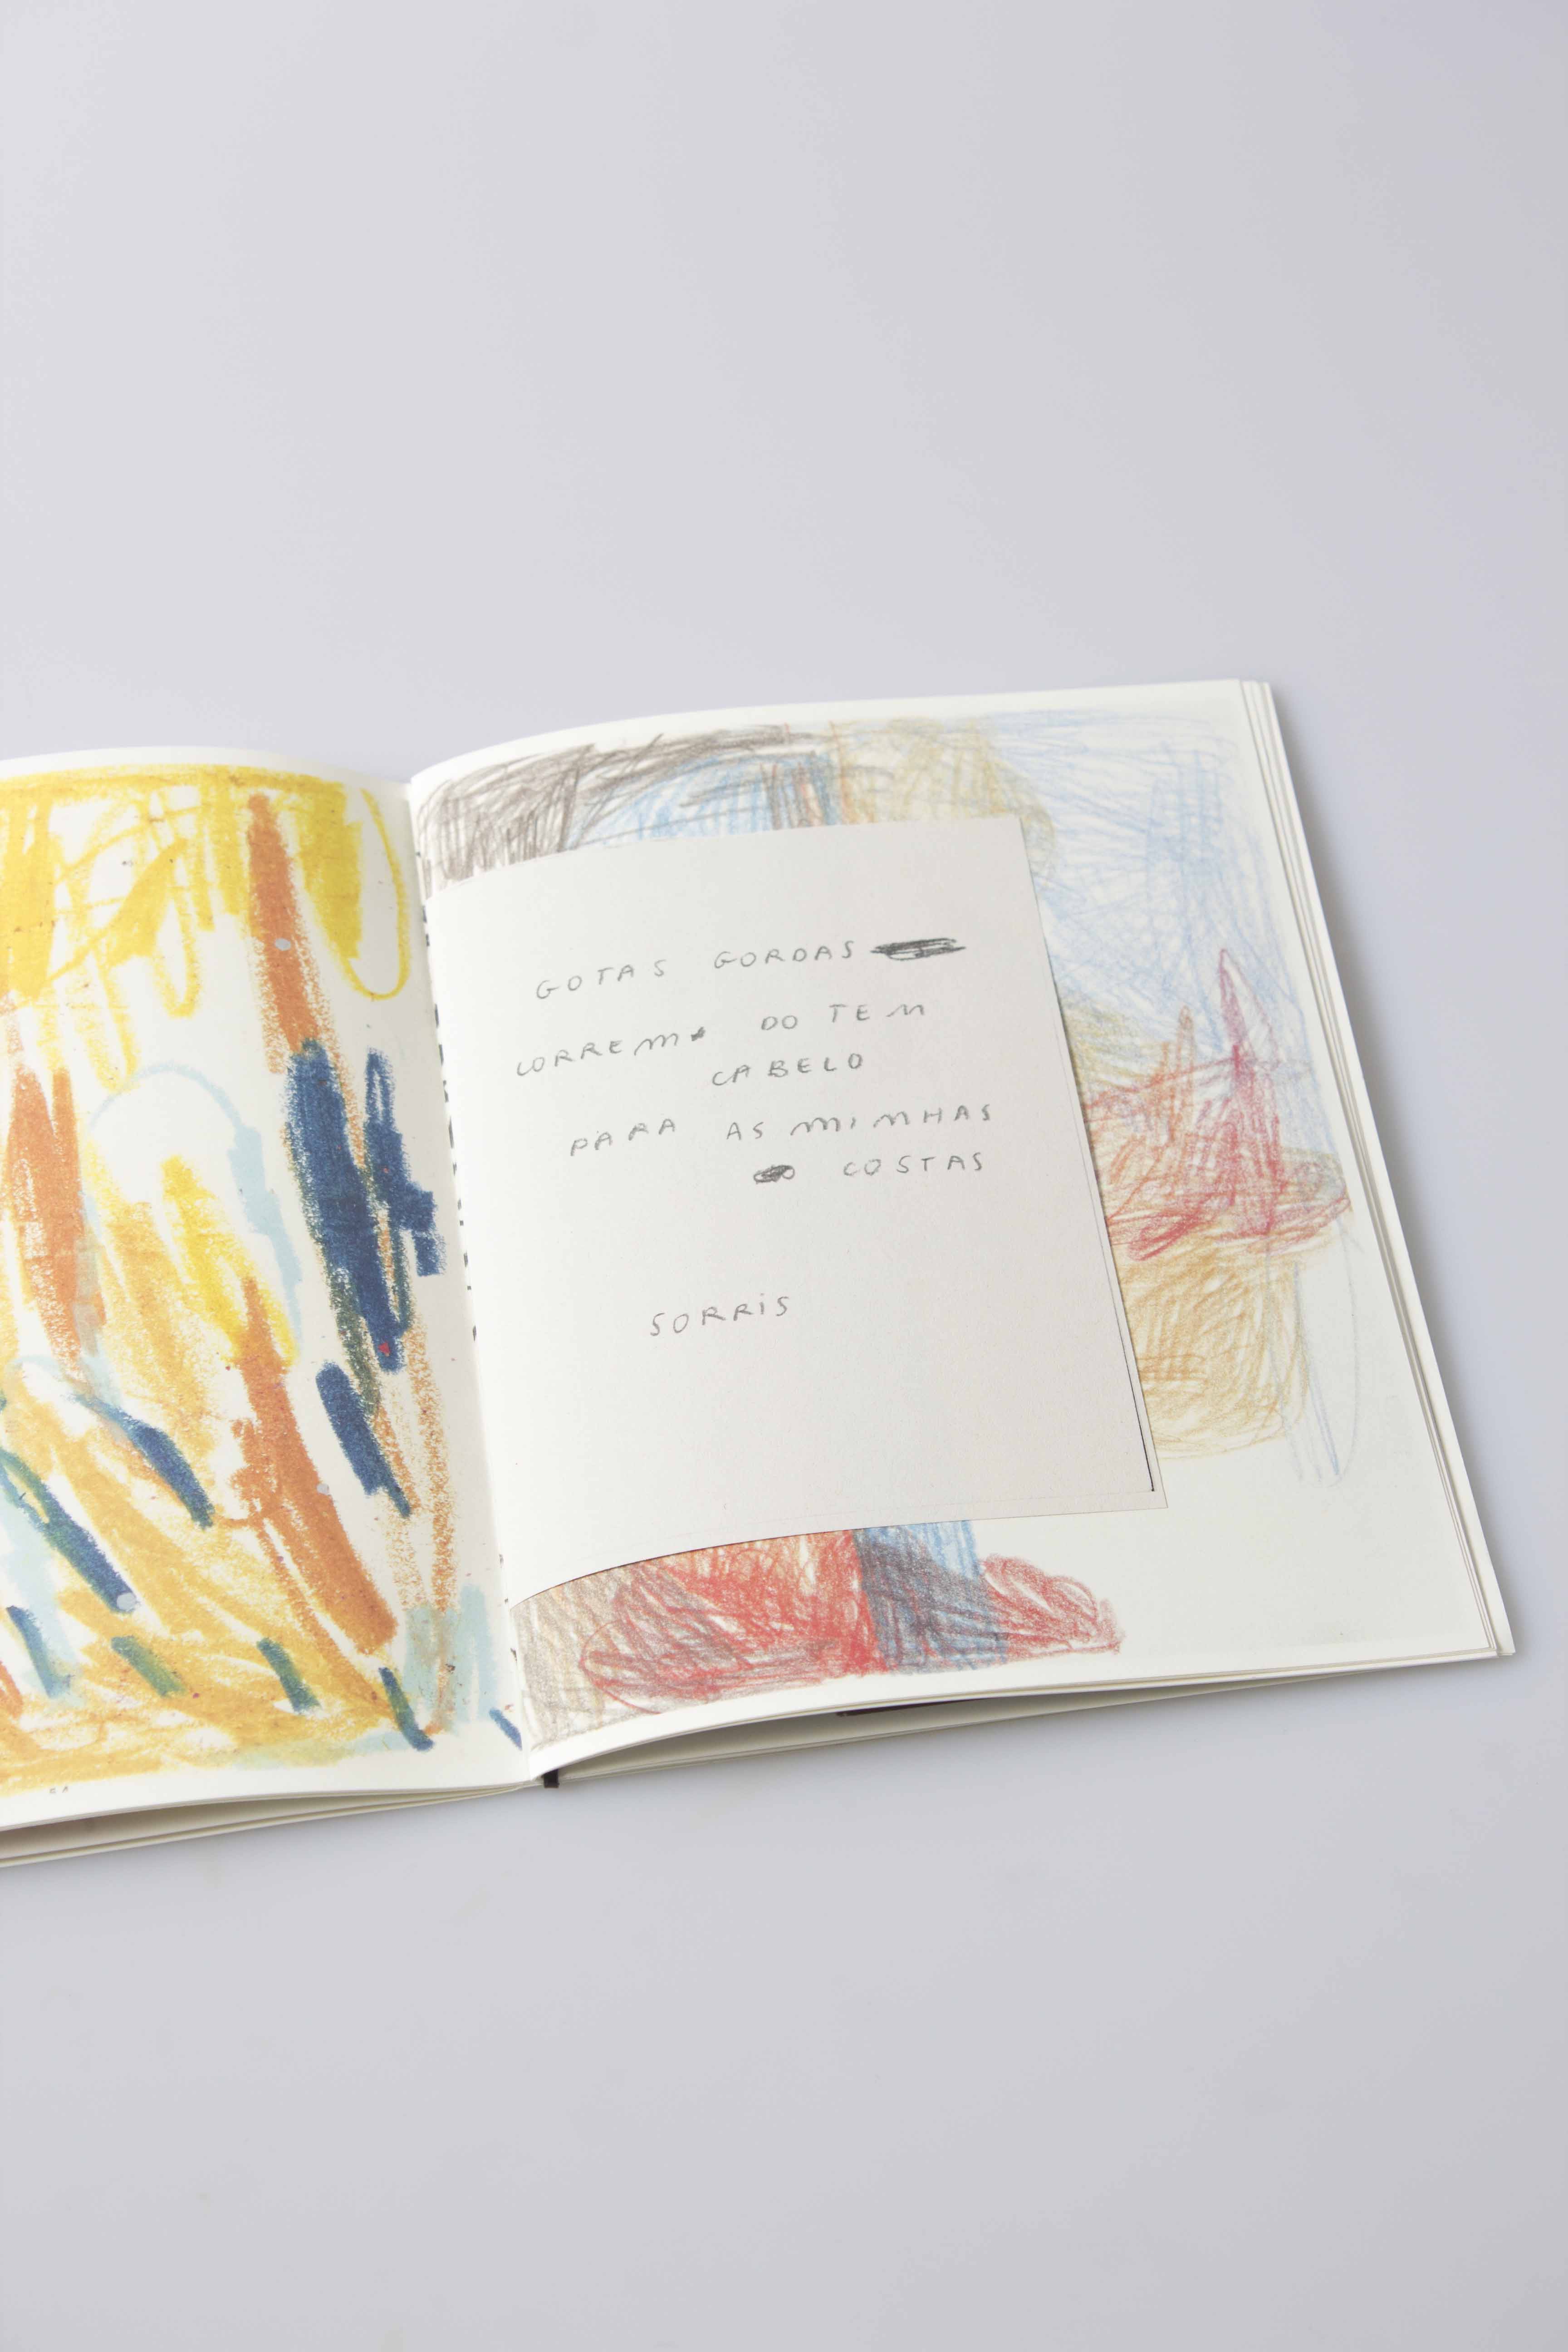 GOTAS GORDAS
CORREM DO TEM
CABELO
PARA AS MINHAS
COSTAS
SORRIS